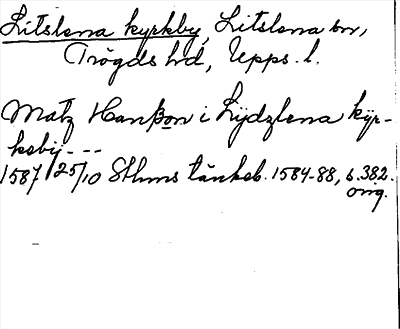 Litslena kyrkby, Litslena sn,
Trögds hd, Upps. l.
Matz Hanßon i Lijdzlena kÿr-
kebÿ - - -
1587 25/10 Sthms tänkeb. 1584-88, s. 382.
orig.